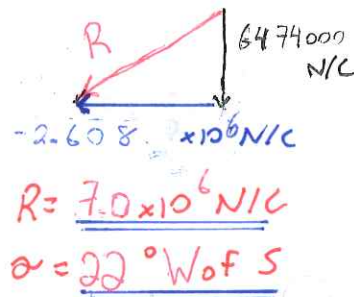 R
6474000
N/C
-2.608 x10⁶N/C
R= 7.0x10⁶ N/C
a = 22° W of S